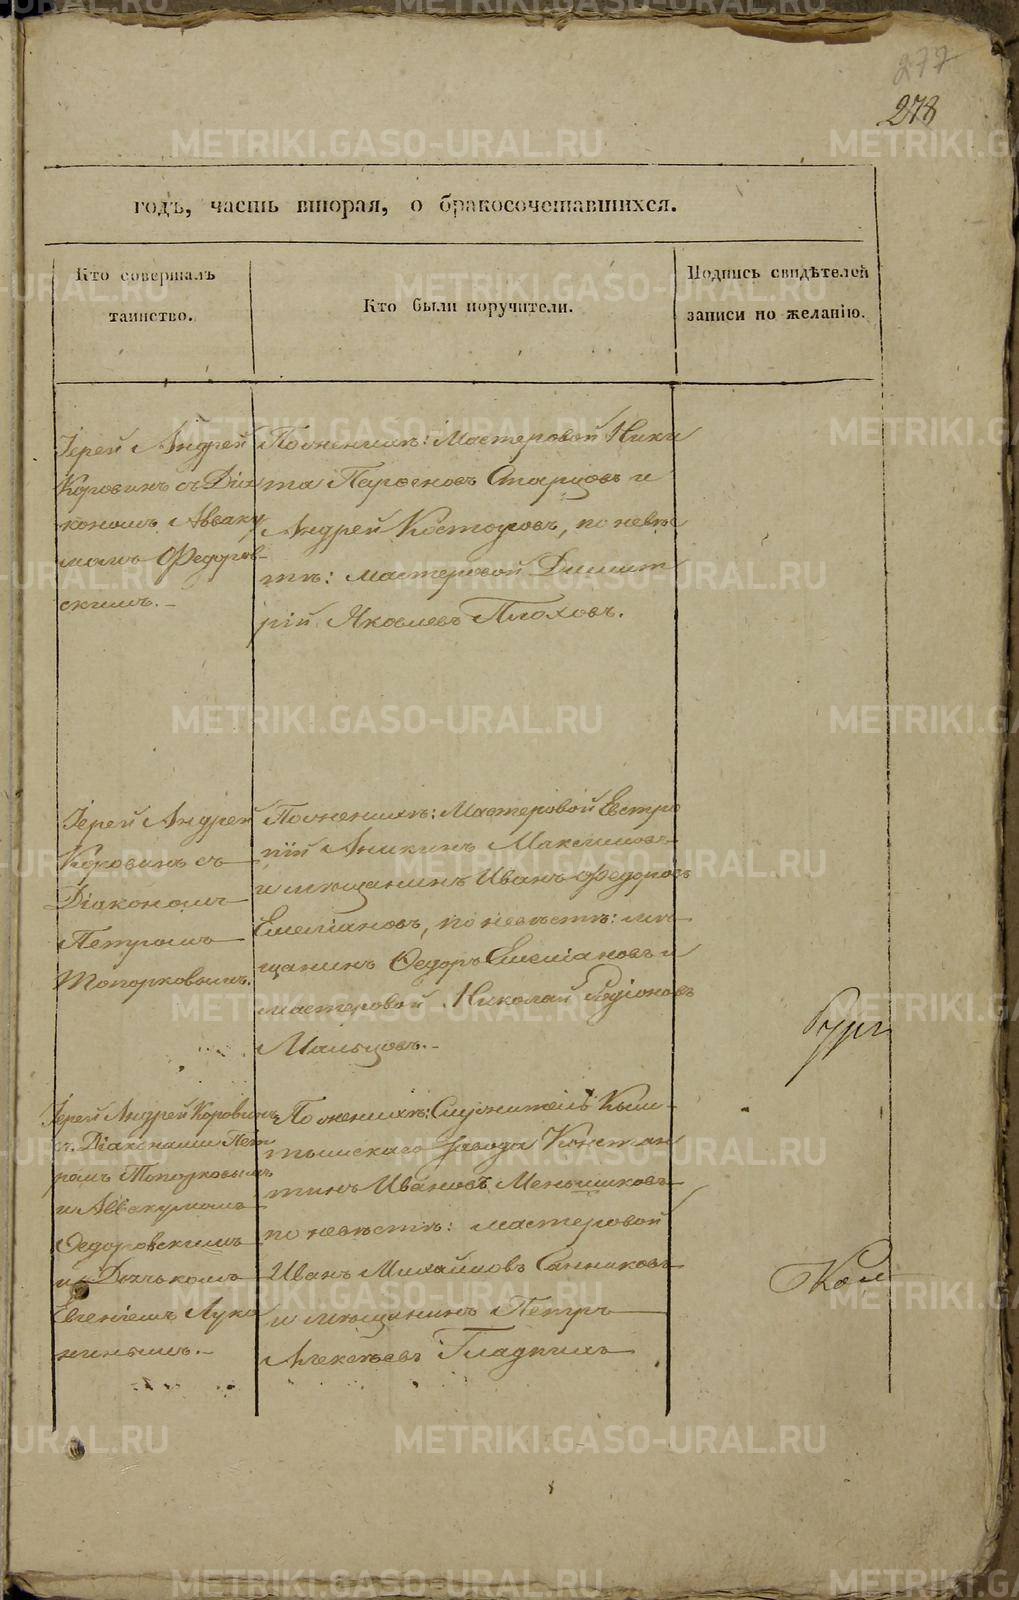 277
278
годъ, часть вторая, о бракосочетавшихся.
Кто совершалъ
таинство.
Кто были поручители.
Подпись свидѣтелей
записи по желанію.
Іерей Андрей
Коровинъ съ Діа
кономъ Аввaку
момъ Федоров-
скимъ.-
По женихѣ: Мастеровой Ники
та Парѳеновъ Старцовъ и
Андрей, по невѣс
тѣ: мастеровой Димит
рій Яковлевъ Плоховъ.
Іерей Андрей
Коровинъ съ
Діакономъ
Петромъ
Топорковымъ.
По женихѣ: Мастеровой Евтро
пій Аникинъ Максимовъ
и мѣщанинъ Иванъ Федоровъ
Емеліановъ, по невѣстѣ: мѣ
щанинъ Ѳедоръ Емеліановъ и
мастеровой Николай Родіоновъ
Мальцовъ.-
Іерей Андрей Коровинъ
съ Діаконами Пет
ромъ Топорковымъ
и Аввакумомъ
Ѳедоровскимъ
и Дьячкомъ
Евгеніемъ Лука
нинымъ.-
По женихѣ: Служитель Кыш-
тымскаго завода Констан
тинъ Ивановъ Меньшиковъ
по невѣстѣ: мастеровой
Иванъ Михайловъ Санниковъ
и мѣщанинъ Петръ
Алексѣевъ Гладкихъ
METRIKI.GASO-URAL.RU